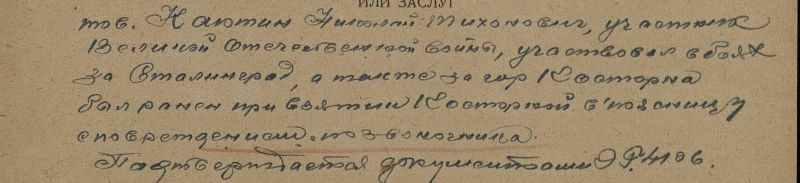 ИЛИ ЗАСЛУГ
тов. Каютин Николай Тихонович, участник
Великой Отечественной войны, участвовал в боях
за Сталинград, а также за гор Косторна
был ранен при взятии Косторной в поясницу
с повреждением позвоночника.
Подтверждается документами